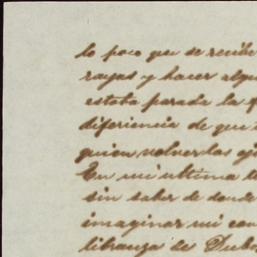 lo poco que se recibe
rayas y hacer algu
estaba parada la
diferiencia de que
quieu volver las
En mi ultima
sin saber de donde
imaginar mi con
libranza de Dubo